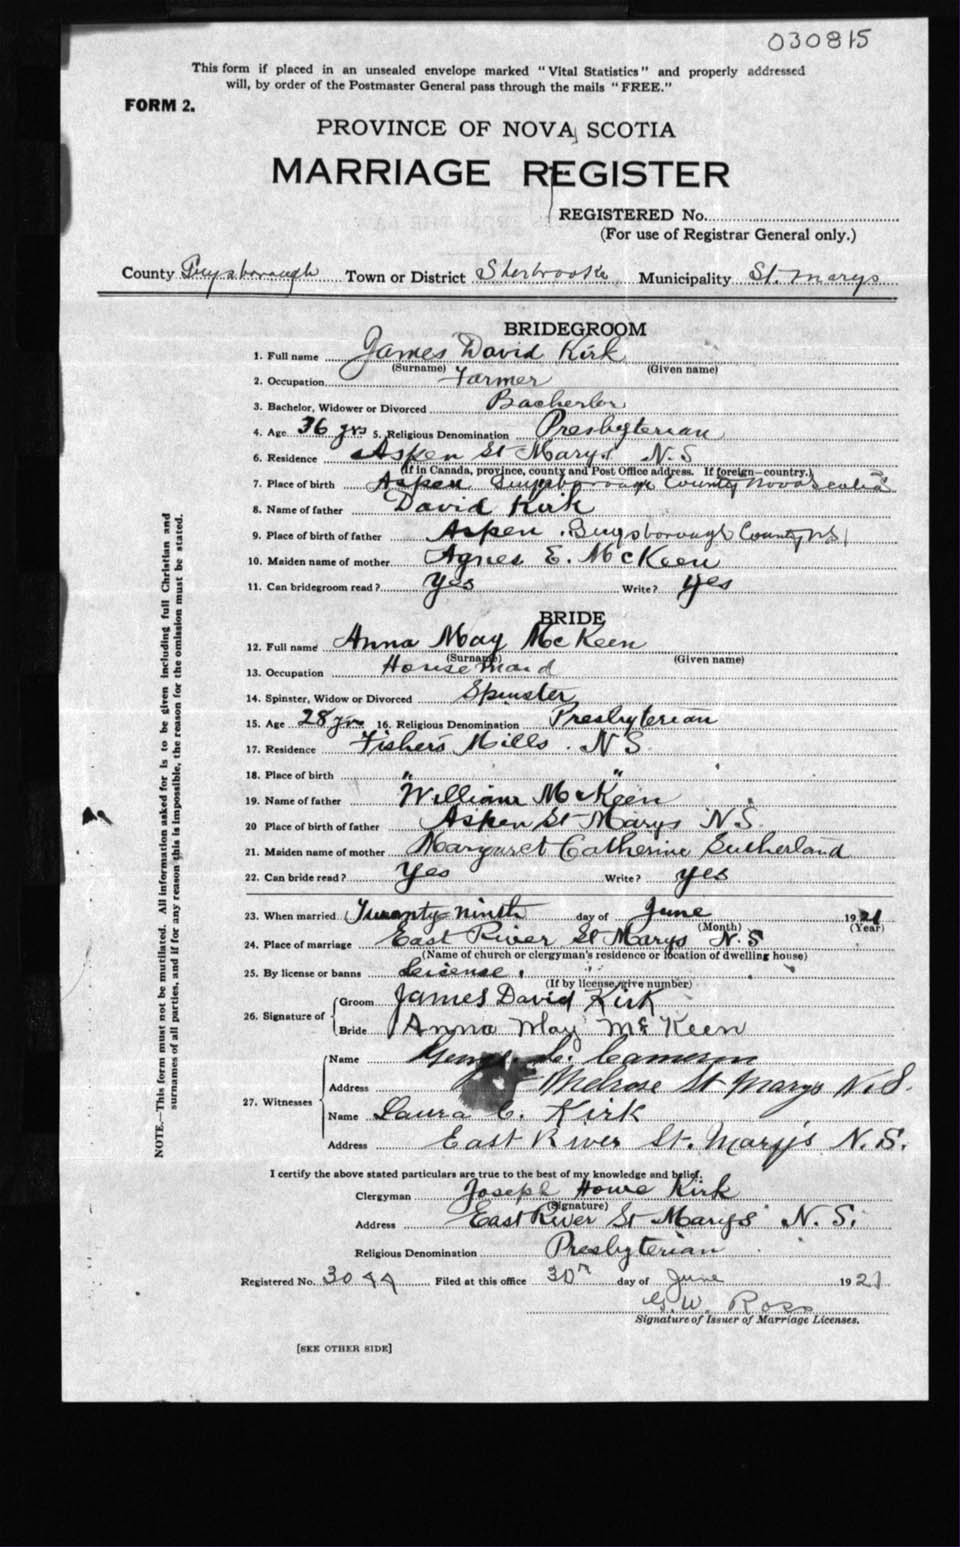 030815
This form if placed in an unsealed envelope marked "Vital Statistics" and properly addressed
will, by order of the Postmaster General pass through the mails "FREE."
FORM 2.
PROVINCE OF NOVA SCOTIA
MARRIAGE REGISTER
REGISTERED No.
(For use of Registrar General only.)
County Guysborough Town or District Sherbrooke Municipality St. Marys
BRIDEGROOM
1. Full name James David Kirk
(Surname) (Given name)
2. Occupation Farmer
3. Bachelor, Widower or Divorced Bacherlor
4. Age 36 yrs 5. Religious Denomination Presbyterian
6. Residence Aspen St Marys N.S
(If in Canada, province, county and Post Office address. If foreign—country.)
7. Place of birth Aspen Guysborough County Nova Scotia
8. Name of father David Kirk
9. Place of birth of father Aspen Guysborough County N S
10. Maiden name of mother Agnes E. McKeen
11. Can bridegroom read? Yes Write? yes
BRIDE
12. Full name Anna May McKeen
(Surname) (Given name)
13. Occupation House Maid
14. Spinster, Widow or Divorced Spinster
15. Age 28 yrs 16. Religious Denomination Presbyterian
17. Residence Fisher's Mills. N S.
18. Place of birth " "
19. Name of father William McKeen
20 Place of birth of father Aspen St Marys N.S.
21. Maiden name of mother Margaret Catherine Sutherland
22. Can bride read? Yes Write? yes
23. When married Twenty-ninth day of June 1921
(Month) (Year)
24. Place of marriage East River St Marys N.S
(Name of church or clergyman's residence or location of dwelling house)
25. By license or banns Leisense.
(If by license, give number)
26. Signature of Groom James David Kirk
Bride Anna May McKeen
27. Witnesses Name George Cameron
Address Melrose St Marys N.S.
Name Laura C. Kirk
Address East River St. Mary's N.S.
I certify the above stated particulars are true to the best of my knowledge and belief.
Clergyman Joseph Howe Kirk
(Signature)
Address East River St Marys N.S.
Religious Denomination Presbyterian
Registered No. 3044 Filed at this office 30th day of June 1921
G. W. Ross
Signature of Issuer of Marriage Licenses.
[SEE OTHER SIDE]
NOTE.—This form must not be mutilated. All information asked for is to be given including full Christian and
surnames of all parties, and if for any reason this is impossible, the reason for the omission must be stated.